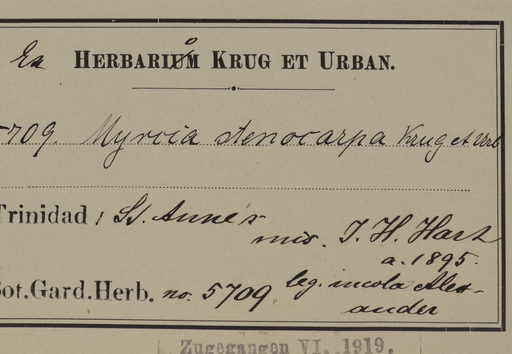 Ex HERBARIO KRUG ET URBAN.
5709. Myrcia stenocarpa Krug et Urb
Trinidad: St. Anne's
mis. J. H. Hart
a. 1895.
Bot. Gard. Herb. no. 5709 leg. incola Alex-
ander
Zugegangen VI. 1919.